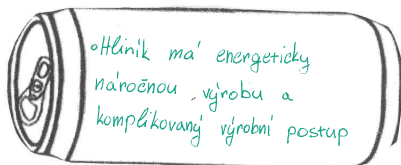 •Hliník má energeticky
náročnou výrobu a
komplikovaný výrobní postup